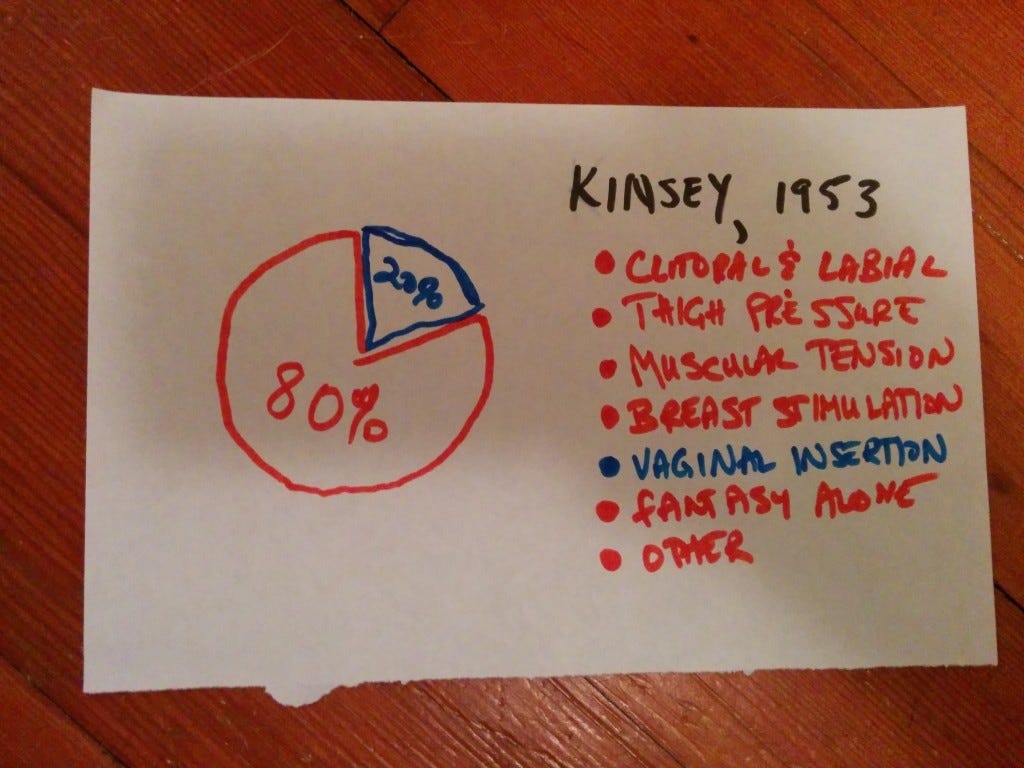 KINSEY, 1953
20%
80%
• CLITORAL & LABIAL
• THIGH PRESSURE
• MUSCULAR TENSION
• BREAST STIMULATION
• VAGINAL INSERTION
• FANTASY ALONE
• OTHER